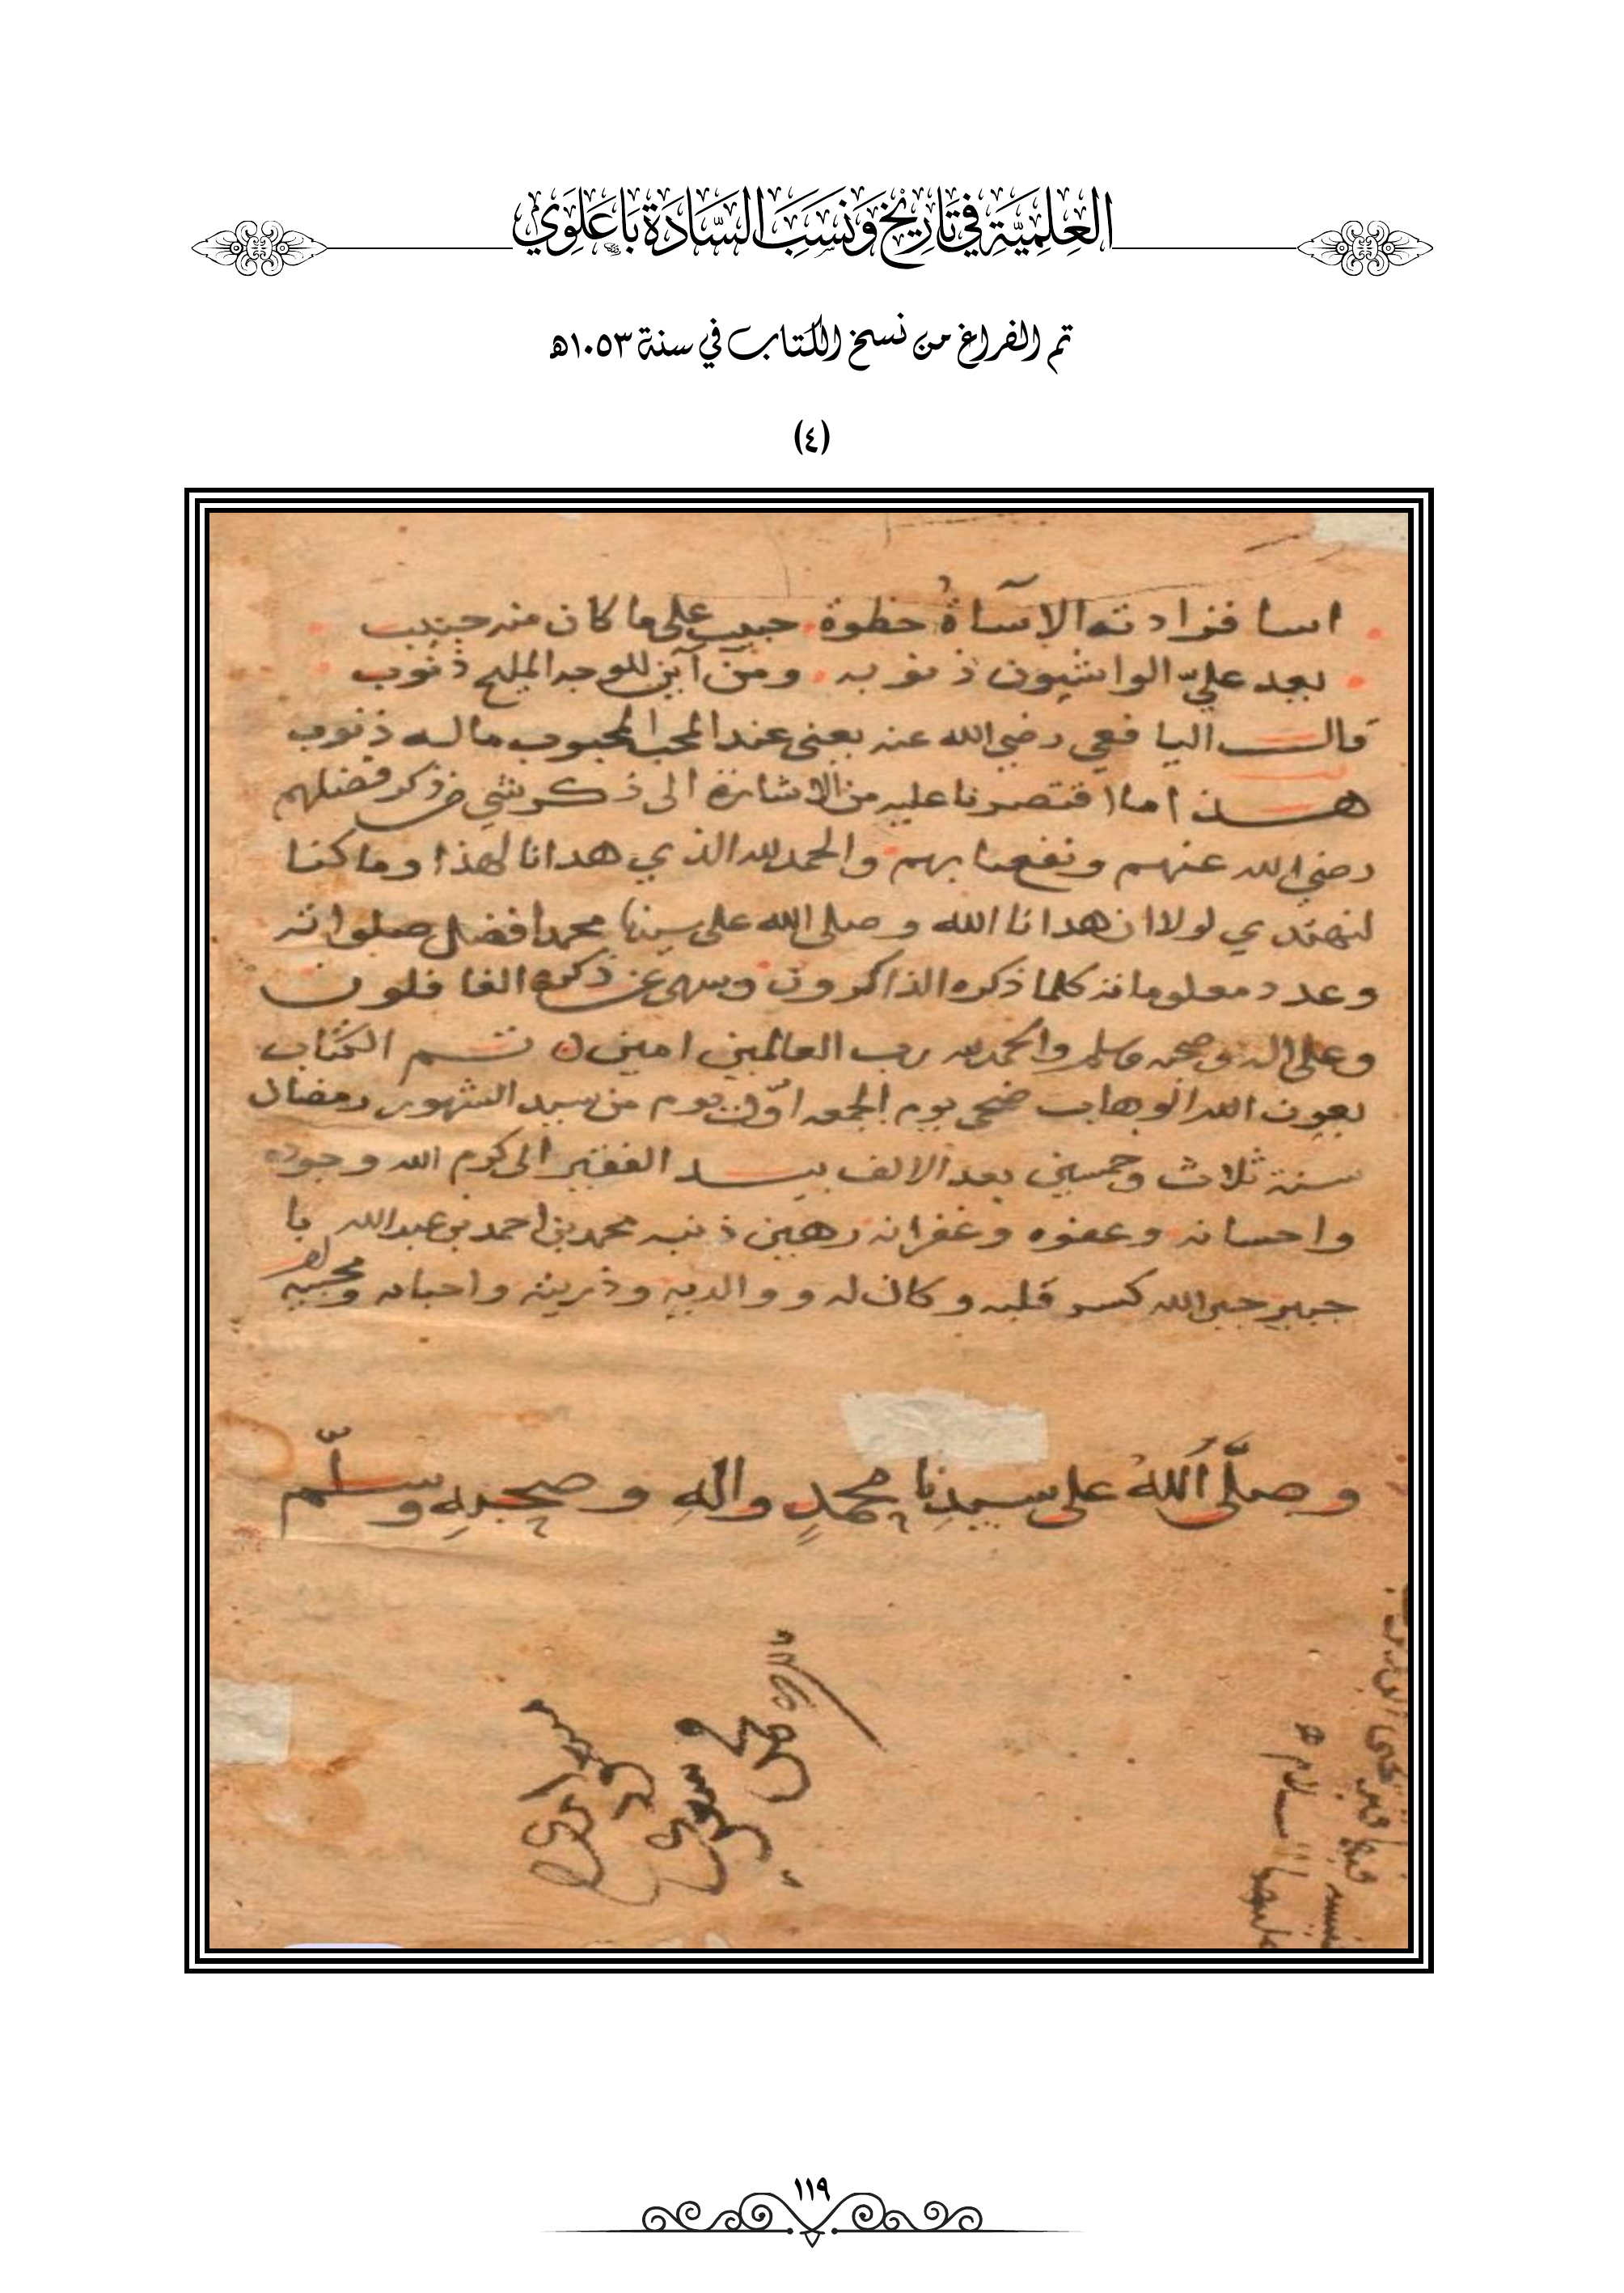 العِلْمِيَّةِ فِي تَارِيْخِ وَنَسَبِ السَّادَةِ بَاعَلَوِي
تم الفراغ من نسخ الكتاب في سنة ١٠٥٣هـ
(٤)
اسا فزادته الاسآة حظوة حبيب على ما كان منه حبيب
يعد عليّ الواشيون ذنوبه ومن أين للوجه المليح ذنوب
قال اليافعي رضي الله عنه يعني عند المحب المحبوب ماله ذنوب
هذا ما اقتصرنا عليه من الاشارة الى ذكر شي من ذكر فضلهم
رضي الله عنهم ونفعنا بهم والحمد لله الذي هدانا لهذا وما كنا
لنهتدي لولا ان هدانا الله وصلى الله على سيدنا محمد افضل صلواته
وعدد معلوماته كلما ذكره الذاكرون وسهى عن ذكره الغافلون
وعلى اله وصحبه وسلم والحمد لله رب العالمين امين تم الكتاب
بعون الله الوهاب ضحى يوم الجمعه اوّل يوم من سيد الشهور رمضان
سنة ثلاث وخمسين بعد الالف بيد الفقير الى كرم الله وجوده
واحسانه وعفوه وغفرانه رهين ذنبه محمد بن احمد بن عبدالله با
جبير جبر الله كسر قلبه وكان له ووالديه وذريته واحبابه ومحبيه
وصلَّى اللهُ على سيدِنا محمدٍ والهِ وصحبهِ وسلّم
١١٩